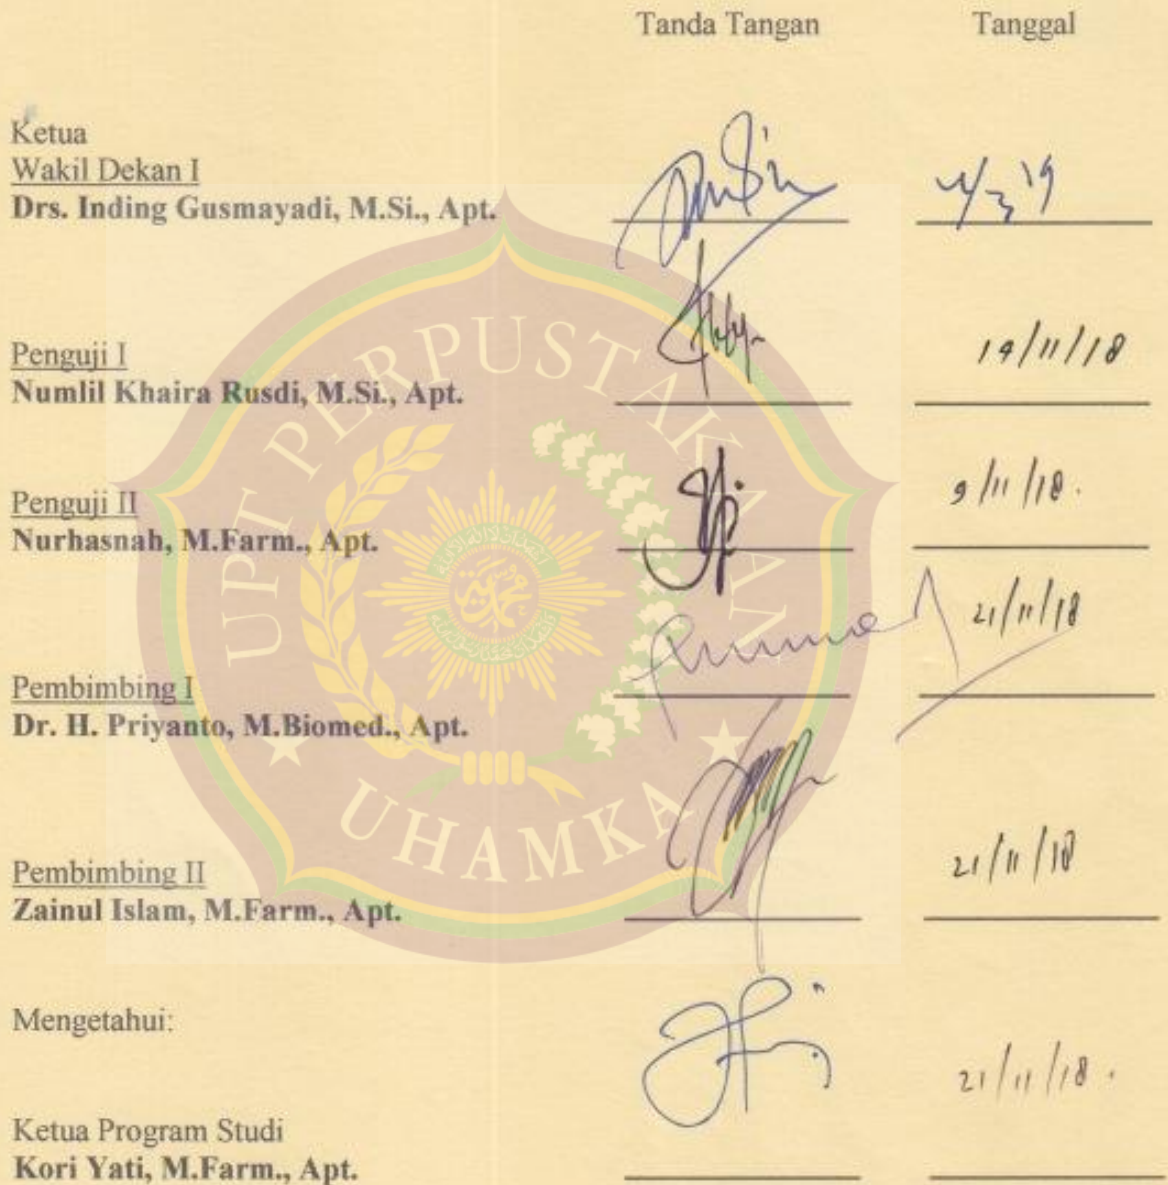 Tanda Tangan Tanggal
Ketua
Wakil Dekan I
Drs. Inding Gusmayadi, M.Si., Apt.
Penguji I 19/11/18
Numlil Khaira Rusdi, M.Si., Apt.
Penguji II 9/11/18.
Nurhasnah, M.Farm., Apt.
21/11/18
Pembimbing I
Dr. H. Priyanto, M.Biomed., Apt.
Pembimbing II 21/11/18
Zainul Islam, M.Farm., Apt.
Mengetahui:
21/11/18.
Ketua Program Studi
Kori Yati, M.Farm., Apt.
UPT PERPUSTAKAAN
UHAMKA